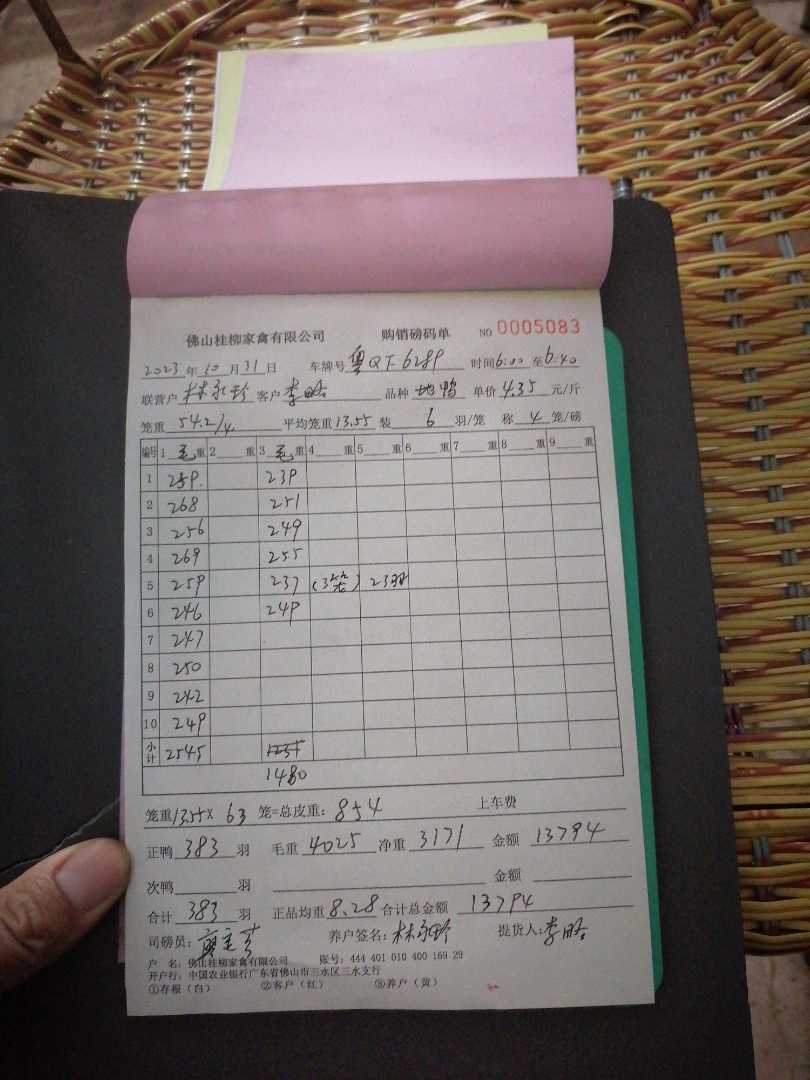 佛山桂柳家禽有限公司 购销磅码单 NO 0005083
2023年10月31日 车牌号粤QF6289 时间6:00至6:40
联营户林永珍 客户李皓 品种地鸭 单价4.35元/斤
笼重54.2/4 平均笼重13.55 装6羽/笼 称4笼/磅
编号 1毛重 2重 3毛重 4重 5重 6重 7重 8重 9重
1 259. 239
2 268 251
3 256 249
4 269 255
5 259 237 (3笼) 23羽
6 246 249
7 247
8 250
9 242
10 249
小计 2545
1480
笼重13.55×63笼=总皮重:854 上车费
正鸭383羽 毛重4025 净重3171 金额13794
次鸭羽 金额
合计383羽 正品均重8.28 合计总金额13794
司磅员: 养户签名:林永珍 提货人:李皓
户 名:佛山桂柳家禽有限公司 账号:444 401 010 400 169 29
开户行:中国农业银行广东省佛山市三水区三水支行
①存根(白) ②客户(红) ③养户(黄)